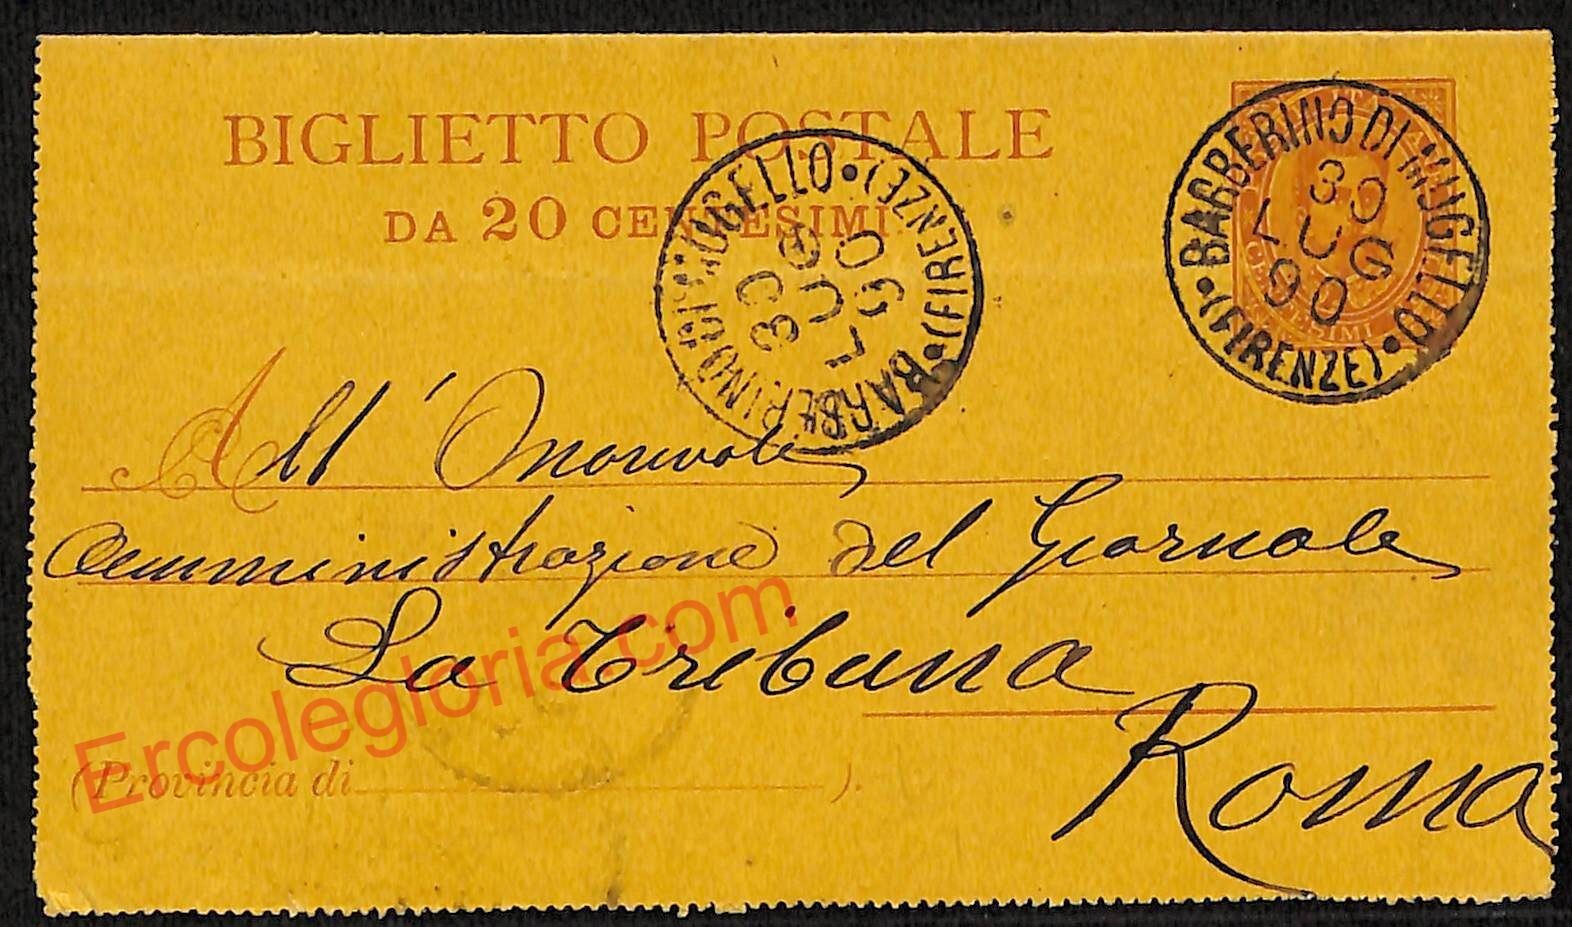 BIGLIETTO POSTALE
DA 20 CENTESIMI
BARBERINO DI MUGELLO
(FIRENZE)
30
LUG
90
BARBERINO DI MUGELLO
(FIRENZE)
30
LUG
90
All' Onorevole
Amministrazione del Giornale
La Tribuna
Roma
(Provincia di ).
Ercolegloria.com